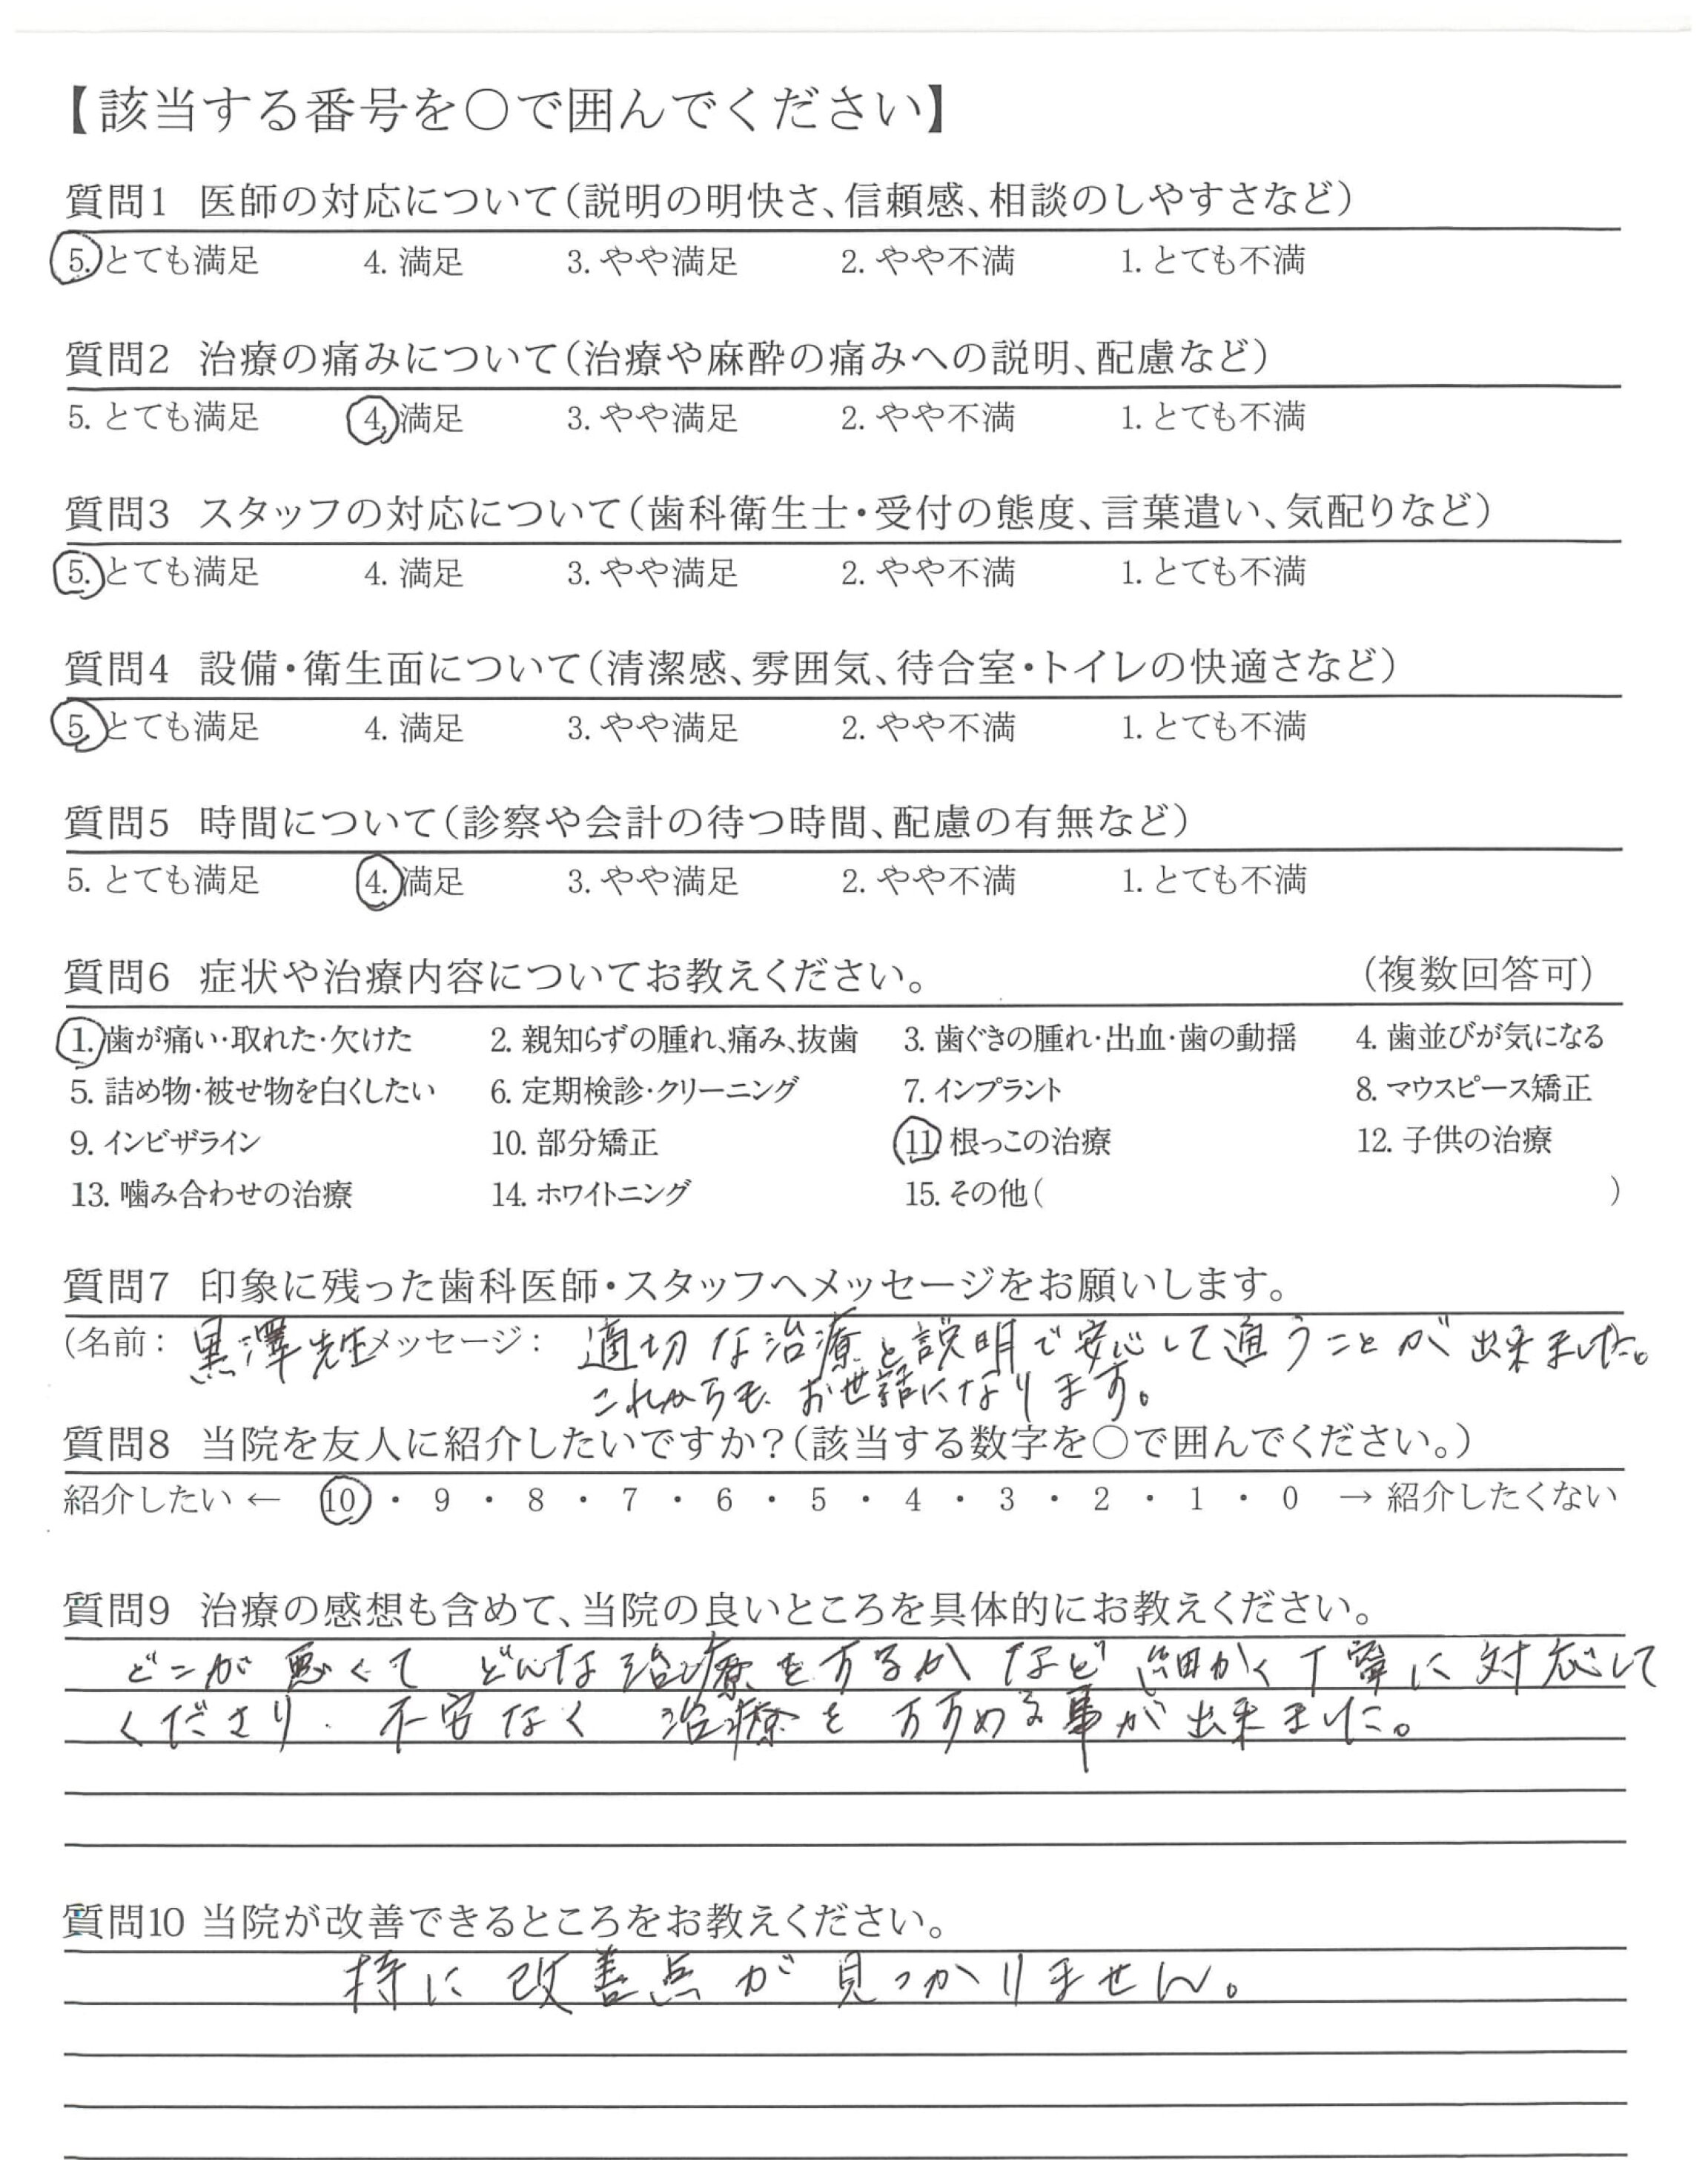 【該当する番号を○で囲んでください】
質問1 医師の対応について(説明の明快さ、信頼感、相談のしやすさなど)
5. とても満足 4. 満足 3. やや満足 2. やや不満 1. とても不満
質問2 治療の痛みについて(治療や麻酔の痛みへの説明、配慮など)
5. とても満足 4. 満足 3. やや満足 2. やや不満 1. とても不満
質問3 スタッフの対応について(歯科衛生士・受付の態度、言葉遣い、気配りなど)
5. とても満足 4. 満足 3. やや満足 2. やや不満 1. とても不満
質問4 設備・衛生面について(清潔感、雰囲気、待合室・トイレの快適さなど)
5. とても満足 4. 満足 3. やや満足 2. やや不満 1. とても不満
質問5 時間について(診察や会計の待つ時間、配慮の有無など)
5. とても満足 4. 満足 3. やや満足 2. やや不満 1. とても不満
質問6 症状や治療内容についてお教えください。 (複数回答可)
1. 歯が痛い・取れた・欠けた 2. 親知らずの腫れ、痛み、抜歯 3. 歯ぐきの腫れ・出血・歯の動揺 4. 歯並びが気になる
5. 詰め物・被せ物を白くしたい 6. 定期検診・クリーニング 7. インプラント 8. マウスピース矯正
9. インビザライン 10. 部分矯正 11. 根っこの治療 12. 子供の治療
13. 噛み合わせの治療 14. ホワイトニング 15. その他( )
質問7 印象に残った歯科医師・スタッフへメッセージをお願いします。
(名前: 黒澤先生 メッセージ: 適切な治療と説明で安心して通うことが出来ました。
これからも お世話になります。
質問8 当院を友人に紹介したいですか?(該当する数字を○で囲んでください。)
紹介したい ← 10 ・ 9 ・ 8 ・ 7 ・ 6 ・ 5 ・ 4 ・ 3 ・ 2 ・ 1 ・ 0 → 紹介したくない
質問9 治療の感想も含めて、当院の良いところを具体的にお教えください。
どこが悪くて どんな治療をするか など 細かく丁寧に対応して
くださり 不安なく 治療を すすめる事が出来ました。
質問10 当院が改善できるところをお教えください。
特に 改善点が 見つかりません。